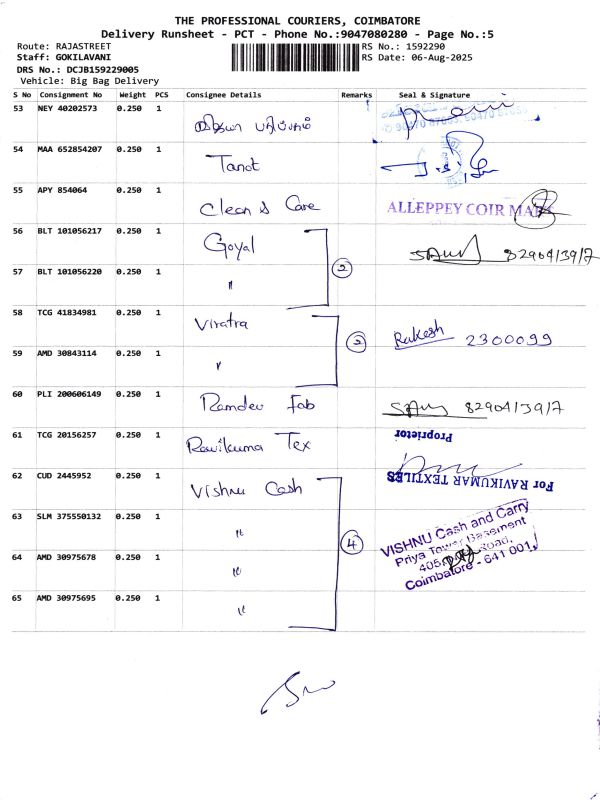 THE PROFESSIONAL COURIERS, COIMBATORE
Delivery Runsheet - PCT - Phone No.:9047080280 - Page No.:5
Route: RAJASTREET RS No.: 1592290
Staff: GOKILAVANI RS Date: 06-Aug-2025
DRS No.: DCJB159229005
Vehicle: Big Bag Delivery
S No Consignment No Weight PCS Consignee Details Remarks Seal & Signature
53 NEY 40202573 0.250 1
54 MAA 652854207 0.250 1 Tanot
55 APY 854064 0.250 1 Clean & Care ALLEPPEY COIR
56 BLT 101056217 0.250 1 Goyal 8290413917
57 BLT 101056220 0.250 1 "
2
58 TCG 41834981 0.250 1 Viratra Rakesh 2300099
59 AMD 30843114 0.250 1 "
2
60 PLI 200606149 0.250 1 Ramdev Fab 8290413917
61 TCG 20156257 0.250 1 Ravikumar Tex Proprietor
For RAVIKUMAR TEXTILES
62 CUD 2445952 0.250 1 Vishnu Cash
63 SLM 375550132 0.250 1 "
64 AMD 30975678 0.250 1 "
65 AMD 30975695 0.250 1 "
4
VISHNU Cash and Carry
Priya Tower Basement
405, Road,
Coimbatore - 641 001.